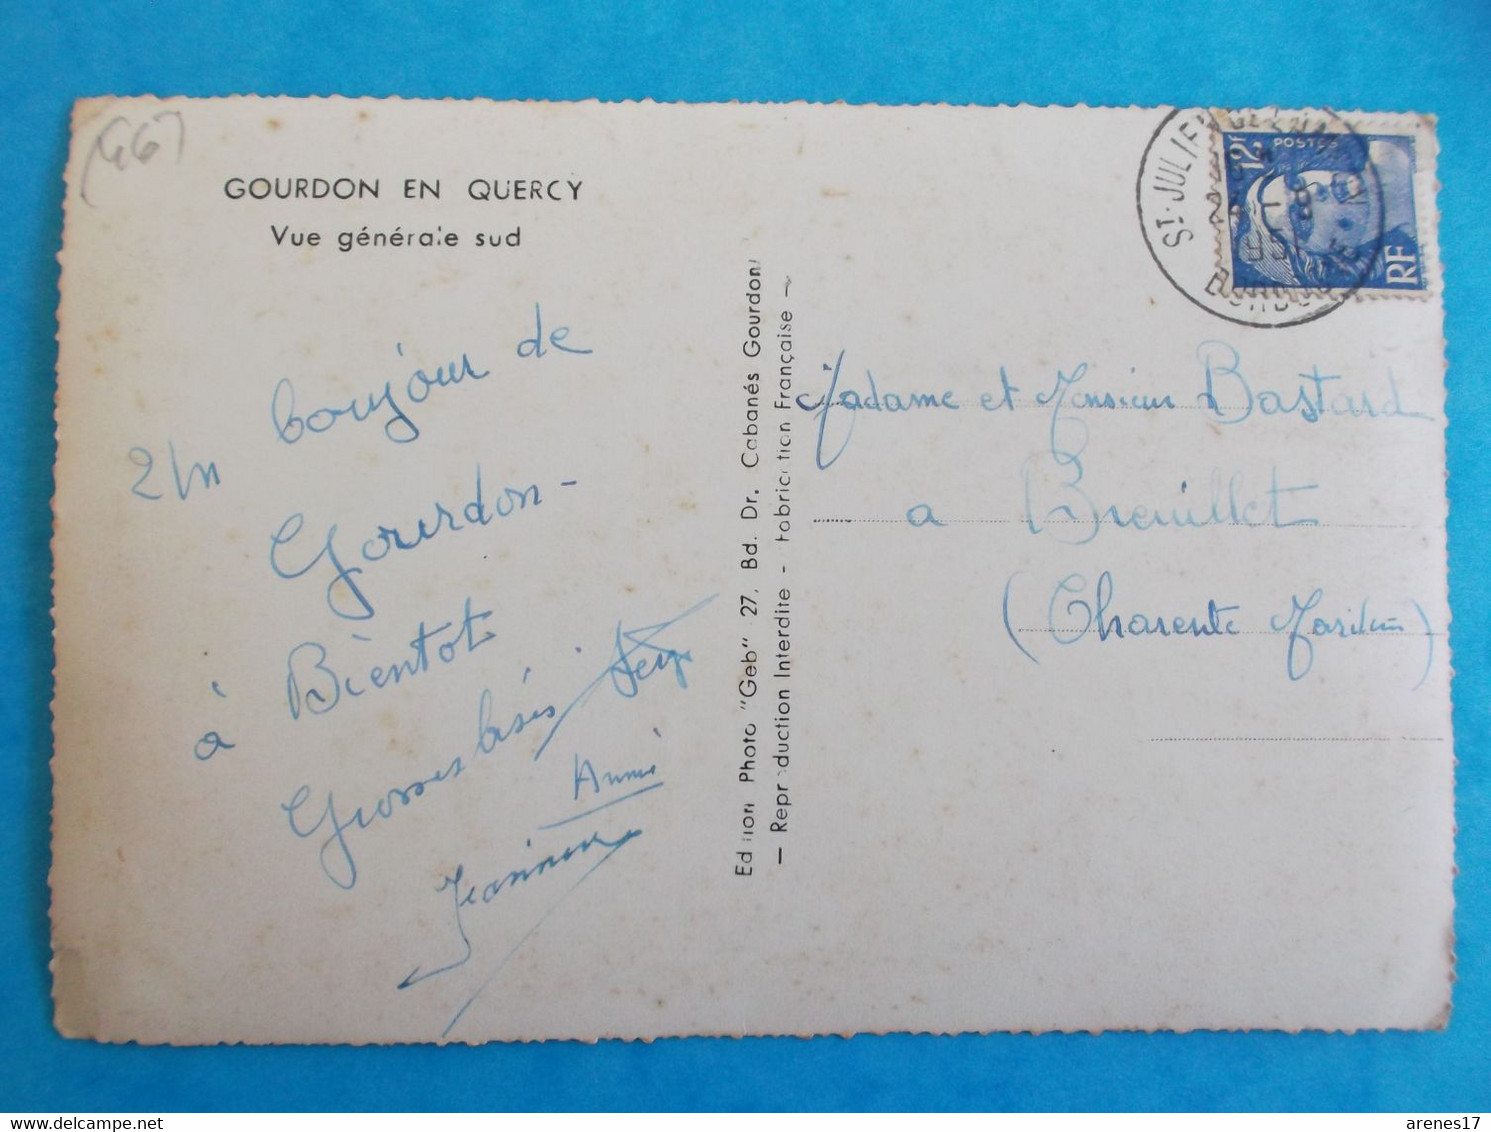 GOURDON EN QUERCY
Vue générale sud
un bonjour de
Gourdon -
à Bientot
Grosses bises
Annie
Jeannine
Edition Photo "Geb" 27, Bd. Dr. Cabanés Gourdon
— Reproduction Interdite - Fabrication Française —
12F POSTES
RF
ST-JULIEN
Madame et Monsieur Bastard
a Breuillet
(Charente Maritime)
arenes17